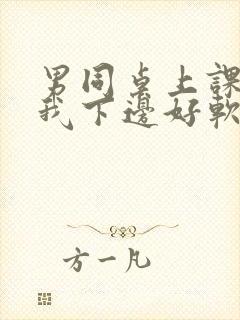 男同桌上課
我下邊好軟
方一凡